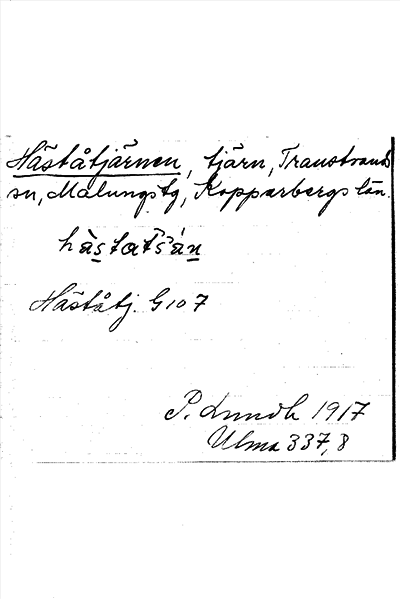 Häståtjärnen, tjärn, Transtrands
sn, Malungs tg, Kopparbergs län.
Häståtj. G 10 7
P. Lundh 1917
Ulma 337, 8